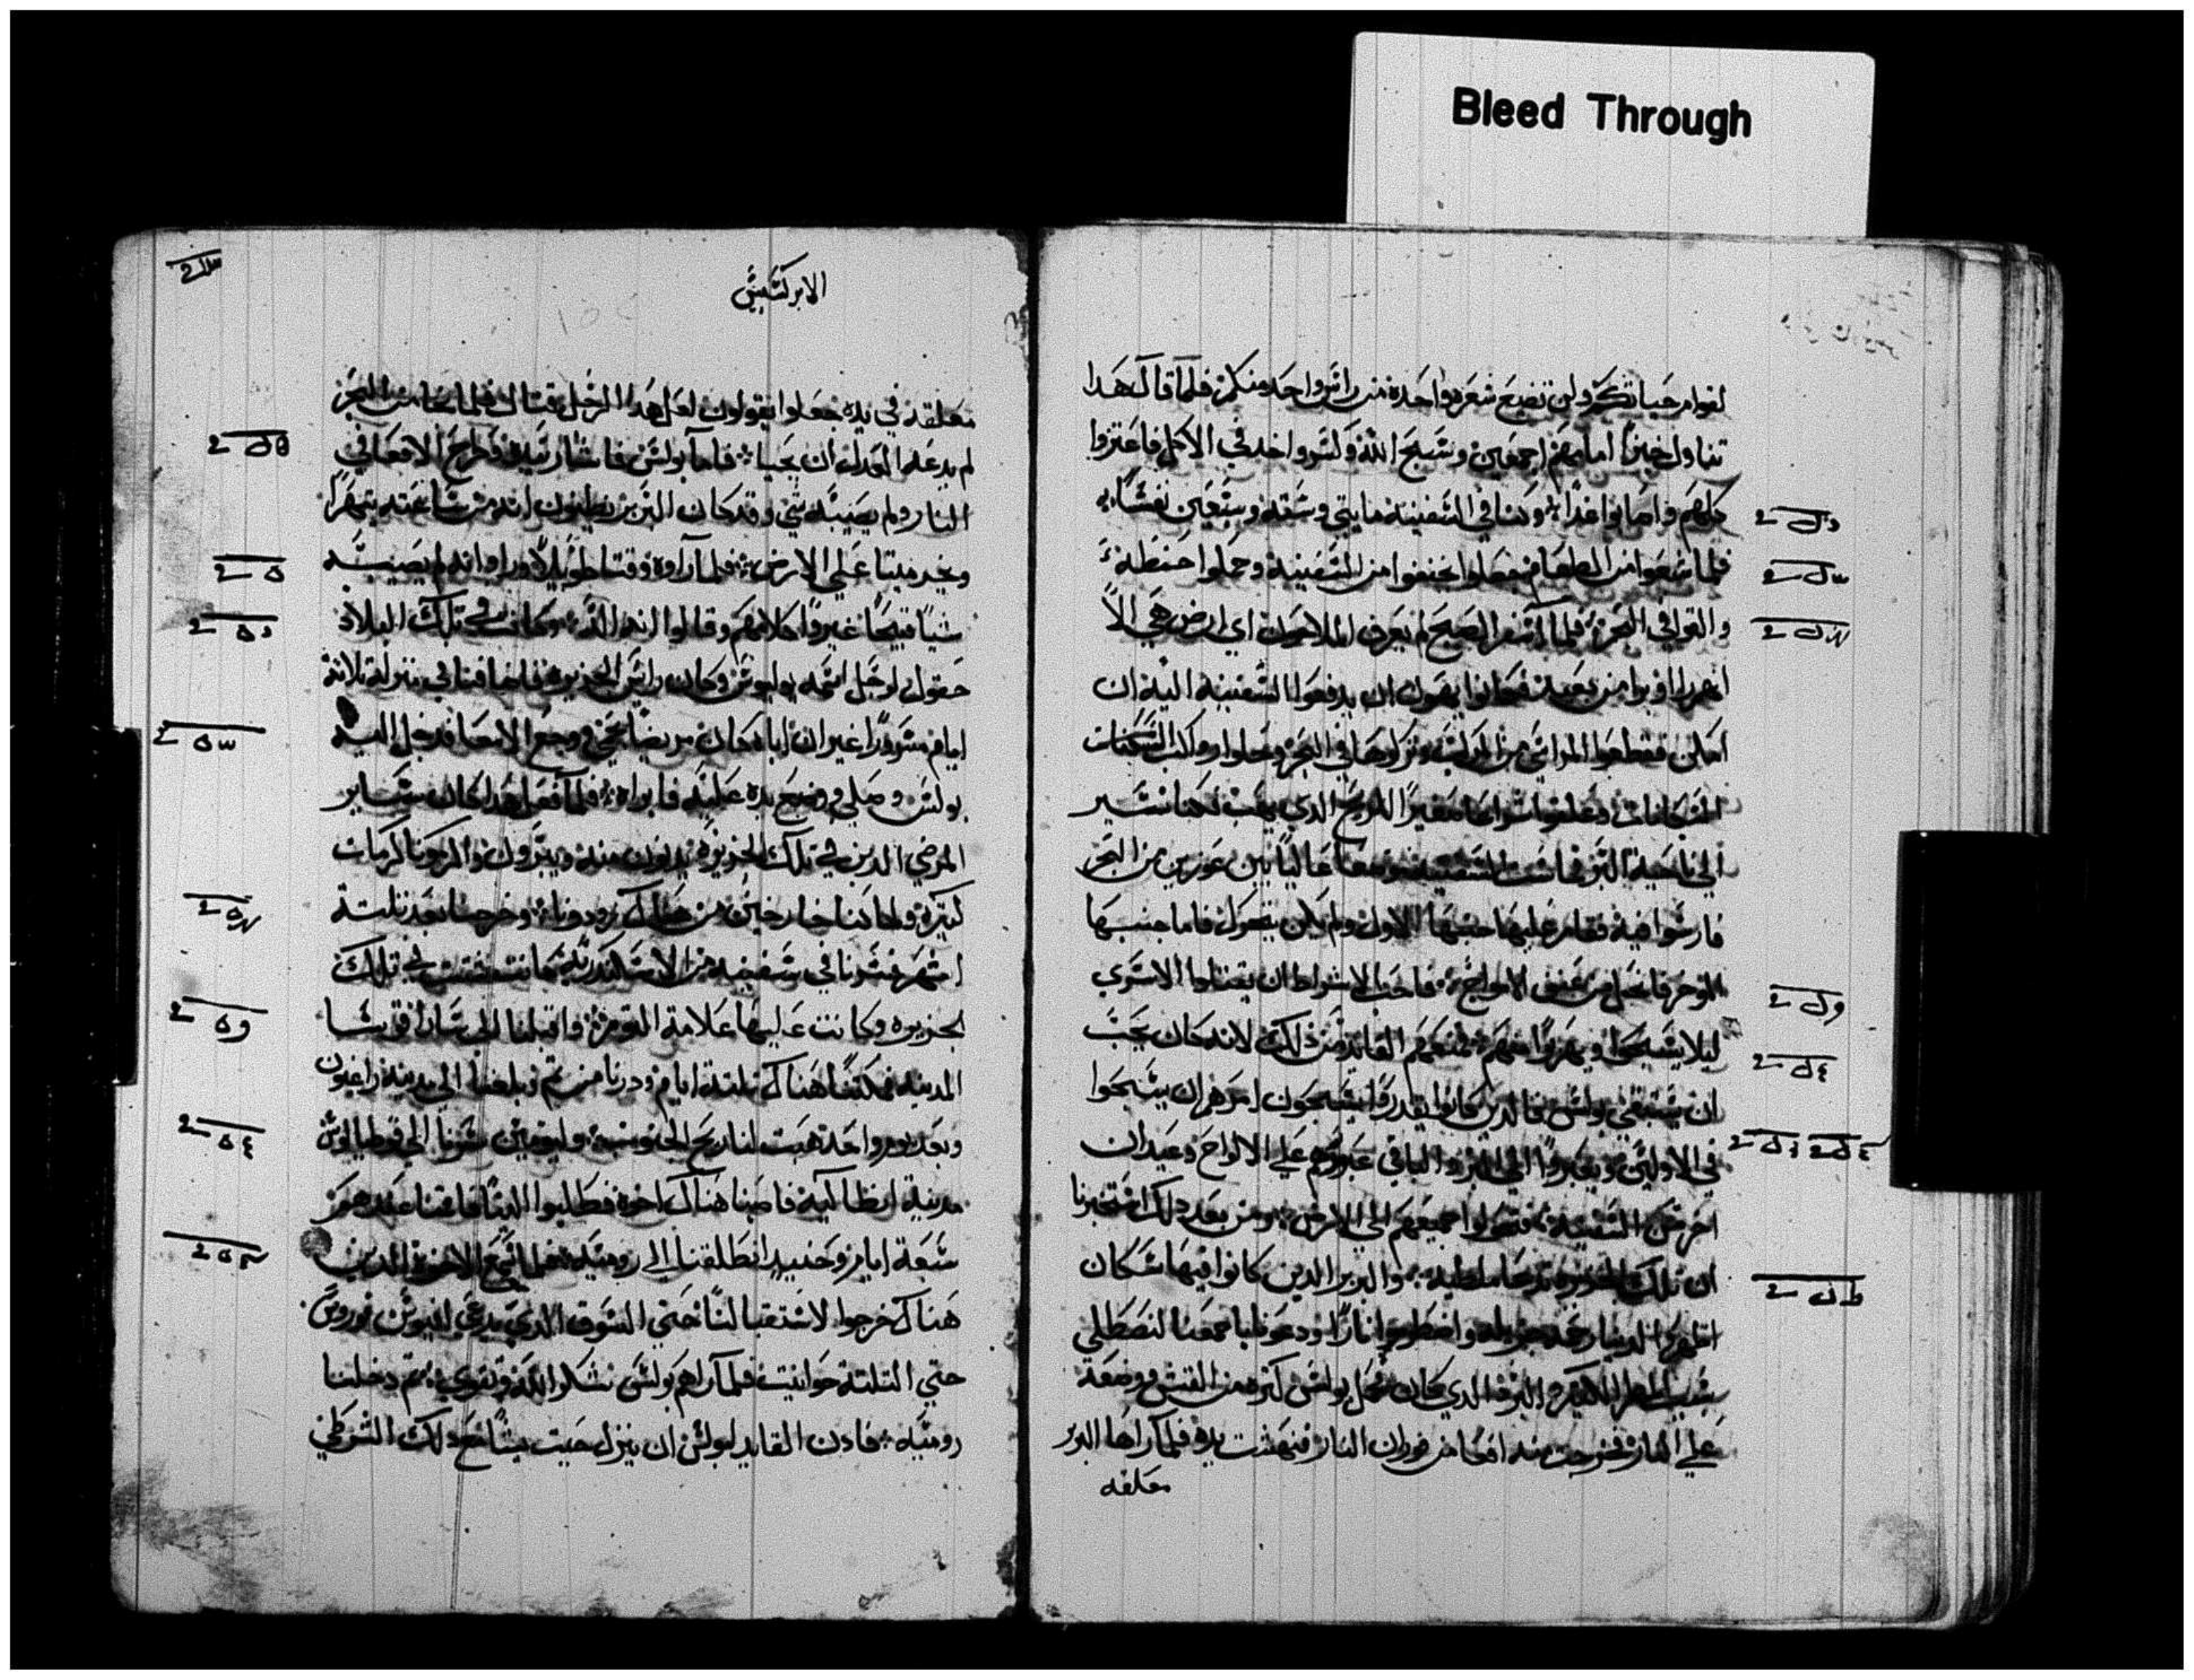 Bleed Through
لقوام حياتكم ولن تضيع شعره واحده من راس واحد منكم فلما قال هدا
تناول خبزا امامهم اجمعين وسبح الله وكسر واخد في الاكل فاعتزوا
كلهم واصابوا غدا وكنا في السفينه مايتي وسته وسبعين نفسا
فلما شبعوا من الطعام جعلوا يخففوا من السفينه وحملوا حنطه
والقوا في البحر فلما اسفر الصبح لم يعرف الملاحون اي ارض هي الا
انهم راوا من بعيد فكانوا يهمون ان يدفعوا السفينه اليه ان
امكن فقطعوا المراسي من المركب وتركوها في البحر وحلوا السكنات
صغيرا للريح الدي يهب لكنا نسير
الي ناحية البر السفينه موضعا عاليا بين غورين من البحر
فارسوا فيه فقام عليها جنبها الاول ولم يكن يتحول فاما جنبها
الموخر فانحل من عنف الامواج فاحب الاشراط ان يقتلوا الاسري
ليلا يسبحوا ويهربوا منهم فمنعهم القايد من دلك لانه كان يحب
ان يستبقي بولس فالدين كانوا يقدروا يسبحون امرهم ان يسبحوا
في الاولين ويعبروا الي البر والباقي عبروهم علي الالواح وعيدان
اخر من السفينه فتحولوا جميعهم الي الارض ومن بعد دلك استخبرنا
ان تلك الجزيره تدعا ملطيه والبربر الدين كانوا فيها سكان
اظهروا لدينا رحمه جزيله واضطرموا نارا ودعونا باجمعنا لنصطلي
بسبب المطر الكثير والبرد الدي كان فحمل بولس كتره من القش ووضعه
علي النار فخرجت منه افعا من فوران النار فنهشت يده فلما راها البربر
معلقه
الابركسيس
معلقه في يده جعلوا يقولون لعل هدا الرجل قتال فلما نجا من البحر
لم يدعه العدل ان يحيا فاما بولس فاشار بيده وطرح الافعا في
النار ولم يصيبه شي وقد كان البربر يظنون انه من ساعته يتهرا
ويخر ميتا علي الارض فلما راوه وقتا طويلا وراوا انه لم يصيبه
شيا قبيحا غيروا كلامهم وقالوا انه اله وكانت في تلك البلاد
حقول لرجل اسمه بوليوس وكان رايس الجزيره فاضافنا في منزله تلاتة
ايام مسرورا غير ان اباه كان مريضا بحمي ووجع الامعا فدخل اليه
بولس وصلي ووضع يده عليه فابراه فلما فعل هدا كان ساير
المرضي الدين في تلك الجزيره يدنون منه ويبرون واكرمونا كرمات
كتيره ولما كنا خارجين من هناك زودونا وخرجنا بعد تلتة
اشهر فسرنا في سفينه من الاسكندريه كانت شتت في تلك
لجزيره وكانت عليها علامة التومز واقبلنا الي ساراقوسا
المدينه فمكتنا هناك تلتة ايام ودرنا من تم فبلغنا الي مدينة راغيون
وبعد يوم واحد هبت لنا ريح الجنوب وليومين سرنا الي فوطيالوس
مدينة ايطاليه فاصبنا هناك اخوه فطلبوا الينا فاقمنا عندهم
سبعة ايام وحنيد انطلقنا الي روميه فلما سمع الاخوه الدين
هناك خرجوا لاستقبالنا حتي السوق الدي يدعي افيوس فوروس
حتي التلتة حوانيت فلما راهم بولس شكر الله وتقوي تم دخلنا
روميه فادن القايد لبولس ان ينزل حيت يشا مع دلك الشرطي